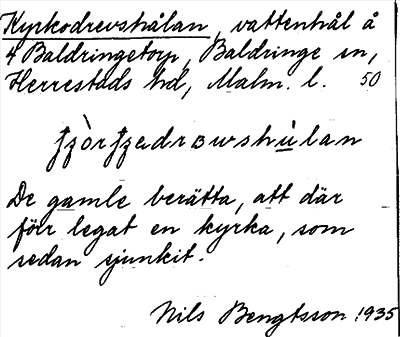 Kyrkodrevshålan, vattenhål å
4 Baldringetorp, Baldringe sn,
Herrestads hd, Malm. l. 50
De gamle berätta, att där
förr legat en kyrka, som
sedan sjunkit.
Nils Bengtsson 1935